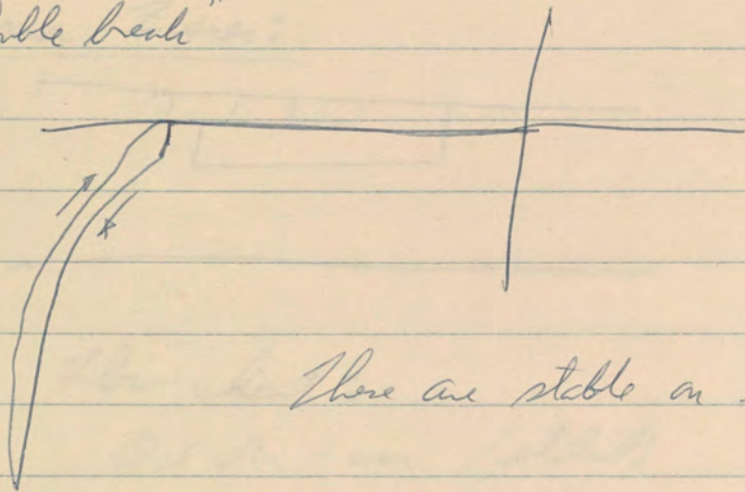 break"
These are stable on